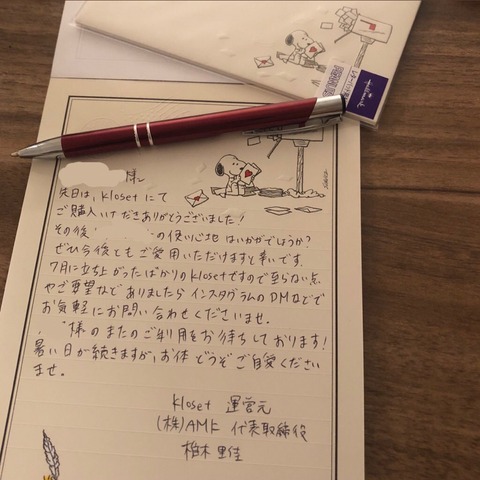 Hallmark
様
先日は、Klosetにて
ご購入いただきありがとうございました!
その後 の使い心地はいかがでしょうか?
ぜひ今後ともご愛用いただけますと幸いです。
7月に立ち上がったばかりのKlosetですので至らない点
やご要望などありましたらインスタグラムのDMなどで
お気軽にお問い合わせくださいませ。
様のまたのご利用をお待ちしております!
暑い日が続きますが、お体どうぞご自愛ください
ませ。
Kloset 運営元
(株)AMK 代表取締役
柏木 里佳